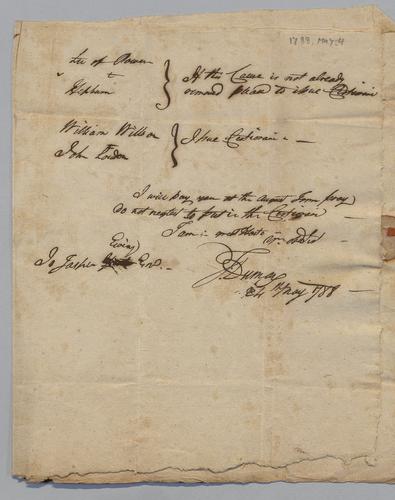 1788, MAY, 4
Lee of Power
v
Hepburn } If this Cause is not already
removed please to issue Certiorari
William Willson
v
John Loudon } Issue Certiorari –
I will pay you at the August Term pray
do not neglect to put in the
I am in most haste yr obdt
To Jasper Ewing Esqr.
24 May 1788